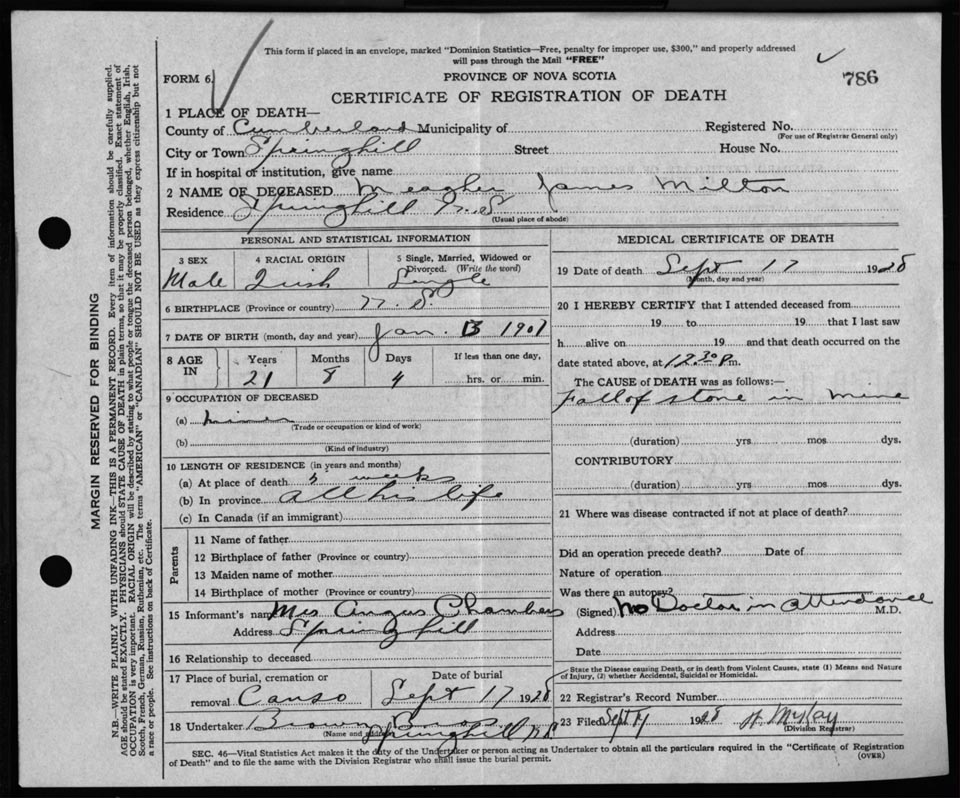 This form if placed in an envelope, marked "Dominion Statistics—Free, penalty for improper use, $300," and properly addressed
will pass through the Mail "FREE"
FORM 6.
PROVINCE OF NOVA SCOTIA
786
CERTIFICATE OF REGISTRATION OF DEATH
1 PLACE OF DEATH—
County of Cumberland Municipality of Registered No.
(For use of Registrar General only)
City or Town Springhill Street House No.
If in hospital or institution, give name
2 NAME OF DECEASED Meagher James Milton
Residence Springhill N.S.
(Usual place of abode)
PERSONAL AND STATISTICAL INFORMATION
3 SEX 4 RACIAL ORIGIN 5 Single, Married, Widowed or
Divorced. (Write the word)
Male Irish Single
6 BIRTHPLACE (Province or country) N.S.
7 DATE OF BIRTH (month, day and year) Jan. 13 1907
8 AGE IN Years Months Days If less than one day,
21 8 4 hrs. or min.
9 OCCUPATION OF DECEASED
(a) miner
(Trade or occupation or kind of work)
(b)
(Kind of industry)
10 LENGTH OF RESIDENCE (in years and months)
(a) At place of death weeks
(b) In province all his life
(c) In Canada (if an immigrant)
Parents
11 Name of father
12 Birthplace of father (Province or country)
13 Maiden name of mother
14 Birthplace of mother (Province or country)
15 Informant's name Mrs Angus Chambers
Address Springhill
16 Relationship to deceased
17 Place of burial, cremation or Date of burial
removal Canso Sept 17 1928
18 Undertaker Brown Springhill N.S.
(Name and address)
MEDICAL CERTIFICATE OF DEATH
19 Date of death Sept 17 1928
(Month, day and year)
20 I HEREBY CERTIFY that I attended deceased from
19 to 19 that I last saw
h alive on 19 and that death occurred on the
date stated above, at 12.30 P.m.
The CAUSE OF DEATH was as follows:—
Fall of stone in mine
(duration) yrs. mos. dys.
CONTRIBUTORY
(duration) yrs. mos. dys.
21 Where was disease contracted if not at place of death?
Did an operation precede death? Date of
Nature of operation
Was there an autopsy?
(Signed) No Doctor in attendance M.D.
Address
Date
State the Disease causing Death, or in death from Violent Causes, state (1) Means and Nature
of Injury, (2) whether Accidental, Suicidal or Homicidal.
22 Registrar's Record Number
23 Filed Sept 1928 H McKay
(Division Registrar)
SEC. 46—Vital Statistics Act makes it the duty of the Undertaker or person acting as Undertaker to obtain all the particulars required in the "Certificate of Registration
of Death" and to file the same with the Division Registrar who shall issue the burial permit.
(OVER)
MARGIN RESERVED FOR BINDING
N.B.—WRITE PLAINLY WITH UNFADING INK—THIS IS A PERMANENT RECORD. Every item of information should be carefully supplied.
AGE should be stated EXACTLY. PHYSICIANS should STATE CAUSE OF DEATH in plain terms, so that it may be properly classified. Exact statement of
OCCUPATION is very important. RACIAL ORIGIN will be described by stating to what people or tongue the deceased person belonged, whether English, Irish,
Scotch, French, German, Russian, Ruthenian, etc. The terms "AMERICAN" or "CANADIAN" SHOULD NOT BE USED as they express citizenship but not
a race or people. See instructions on back of Certificate.